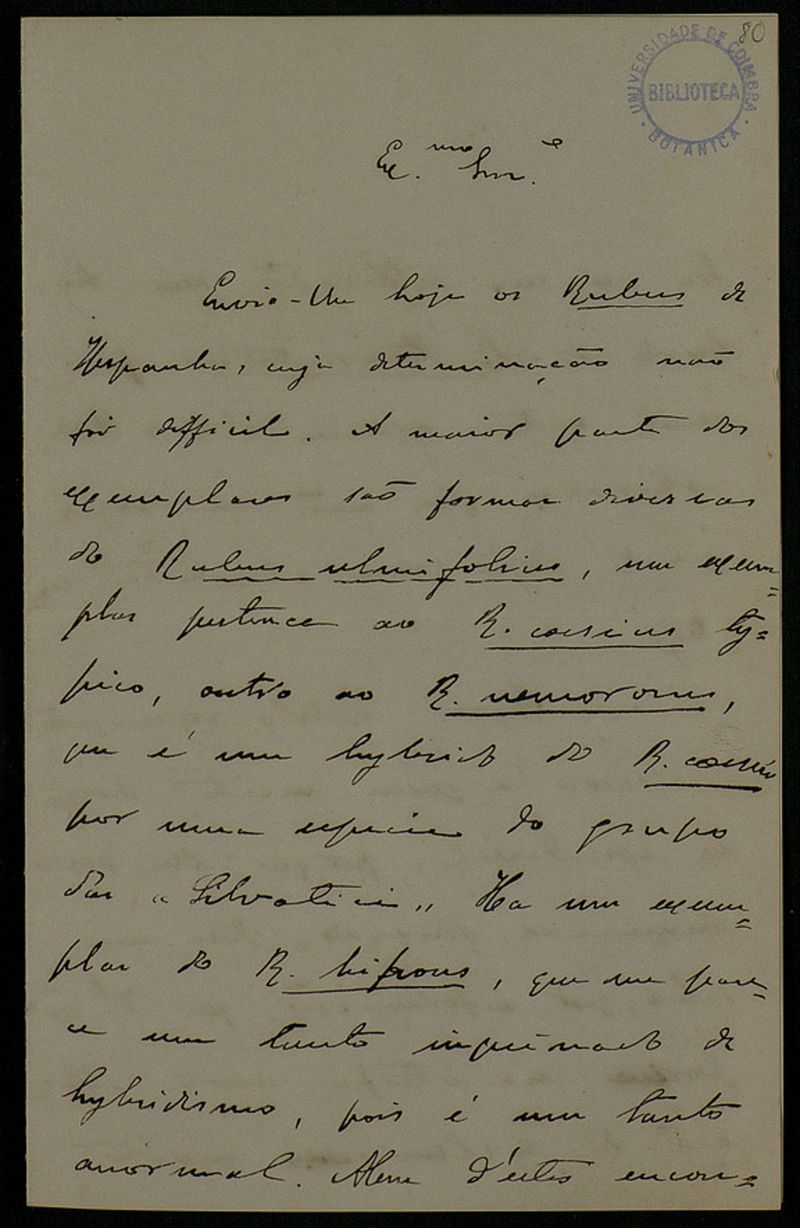 80
UNIVERSIDADE DE COIMBRA
BIBLIOTECA
BOTANICA
Ex.mo Snr.e
Envio-lhe hoje os Rubus de
Hespanha, cuja determinação não
foi difficil. A maior parte dos
exemplares são formas diversas
do Rubus ulmifolius, um exem=
plar pertence ao R. caesius ty=
pico, outro ao R. nemorosus,
que é um hybrido do R. caesius
por uma especie do grupo
dos "Silvatici". Ha um exem=
plar do R. bifrons, que me pare=
ce um tanto inquinado de
hybridismo, pois é um tanto
anormal. Alem d'estes encon=